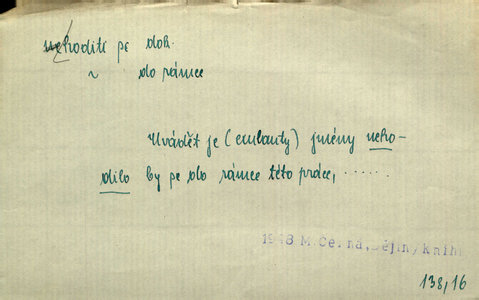 nehoditi se do č.
~ do rámce
Uvádět je (exulanty) jmény neho-
dilo by se do rámce této práce, ......
1948 M.Černá, Dějiny knih
138,16